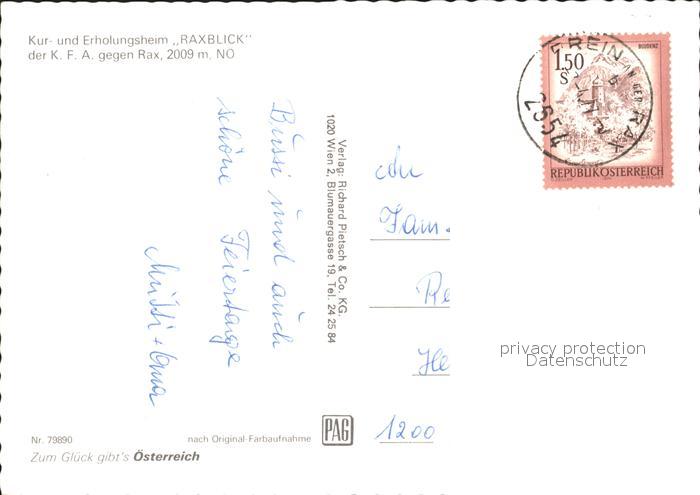 Kur- und Erholungsheim „RAXBLICK"
der K. F. A. gegen Rax, 2009 m, NÖ
Bussi und auch
schöne Feiertage
Mutti + Oma
Verlag: Richard Pietsch & Co. KG.
1020 Wien 2, Blumauergasse 19, Tel. 24 25 84
BLUDENZ
1.50
S
REPUBLIK ÖSTERREICH
REIN
RAX
2654
An
Fam.
Re
He
1200
privacy protection
Datenschutz
Nr. 79890
nach Original-Farbaufnahme
PAG
Zum Glück gibt's Österreich